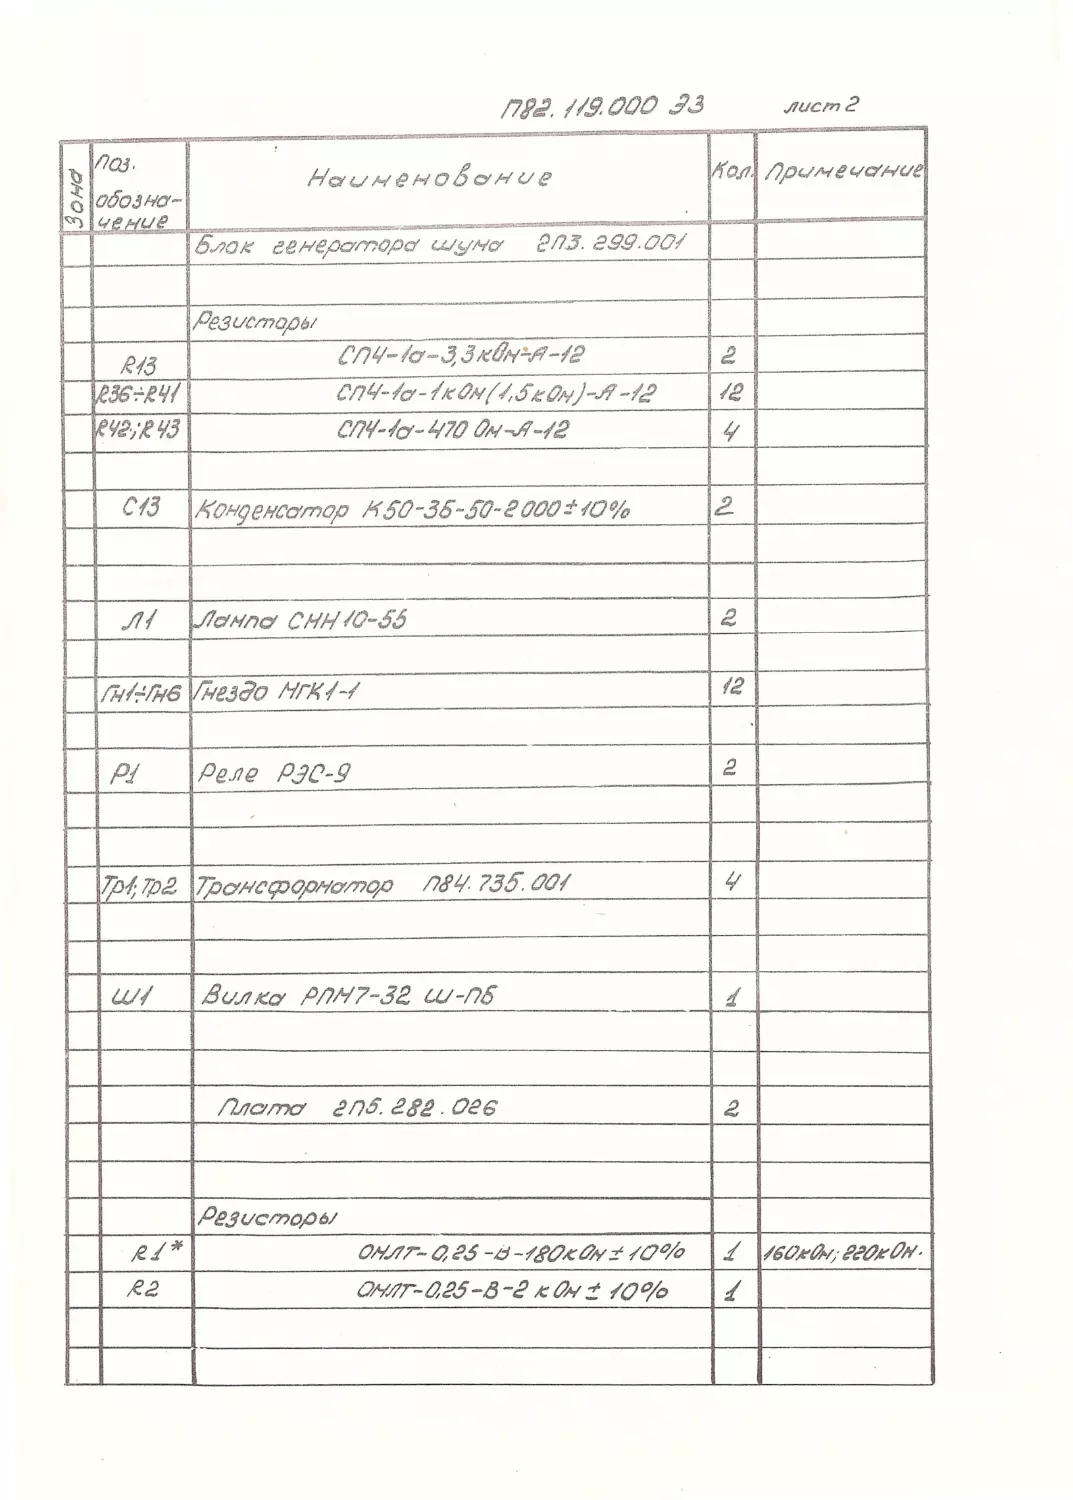 П82.119.000 ЭЗ лист 2
Зона
Поз. обозна-чение Наименование Кол. Примечание
Блок генератора шума 2П3.299.001
Резисторы
R13 СП4-1а-3,3кОм-А-12 2
R36÷R41 СП4-1а-1кОм(1,5кОм)-А-12 12
R42;R43 СП4-1а-470 Ом-А-12 4
C13 Конденсатор К50-3Б-50-2000±10% 2
Л1 Лампа СМН10-55 2
Гн1÷Гн6 Гнездо МГК1-1 12
Р1 Реле РЭС-9 2
Тр1;Тр2 Трансформатор П84.735.001 4
Ш1 Вилка РПМ7-32 Ш-ПБ 1
Плата 2П5.282.026 2
Резисторы
R1* ОМЛТ-0,25-В-180кОм±10% 1 160кОм;220кОм.
R2 ОМЛТ-0,25-В-2кОм±10% 1